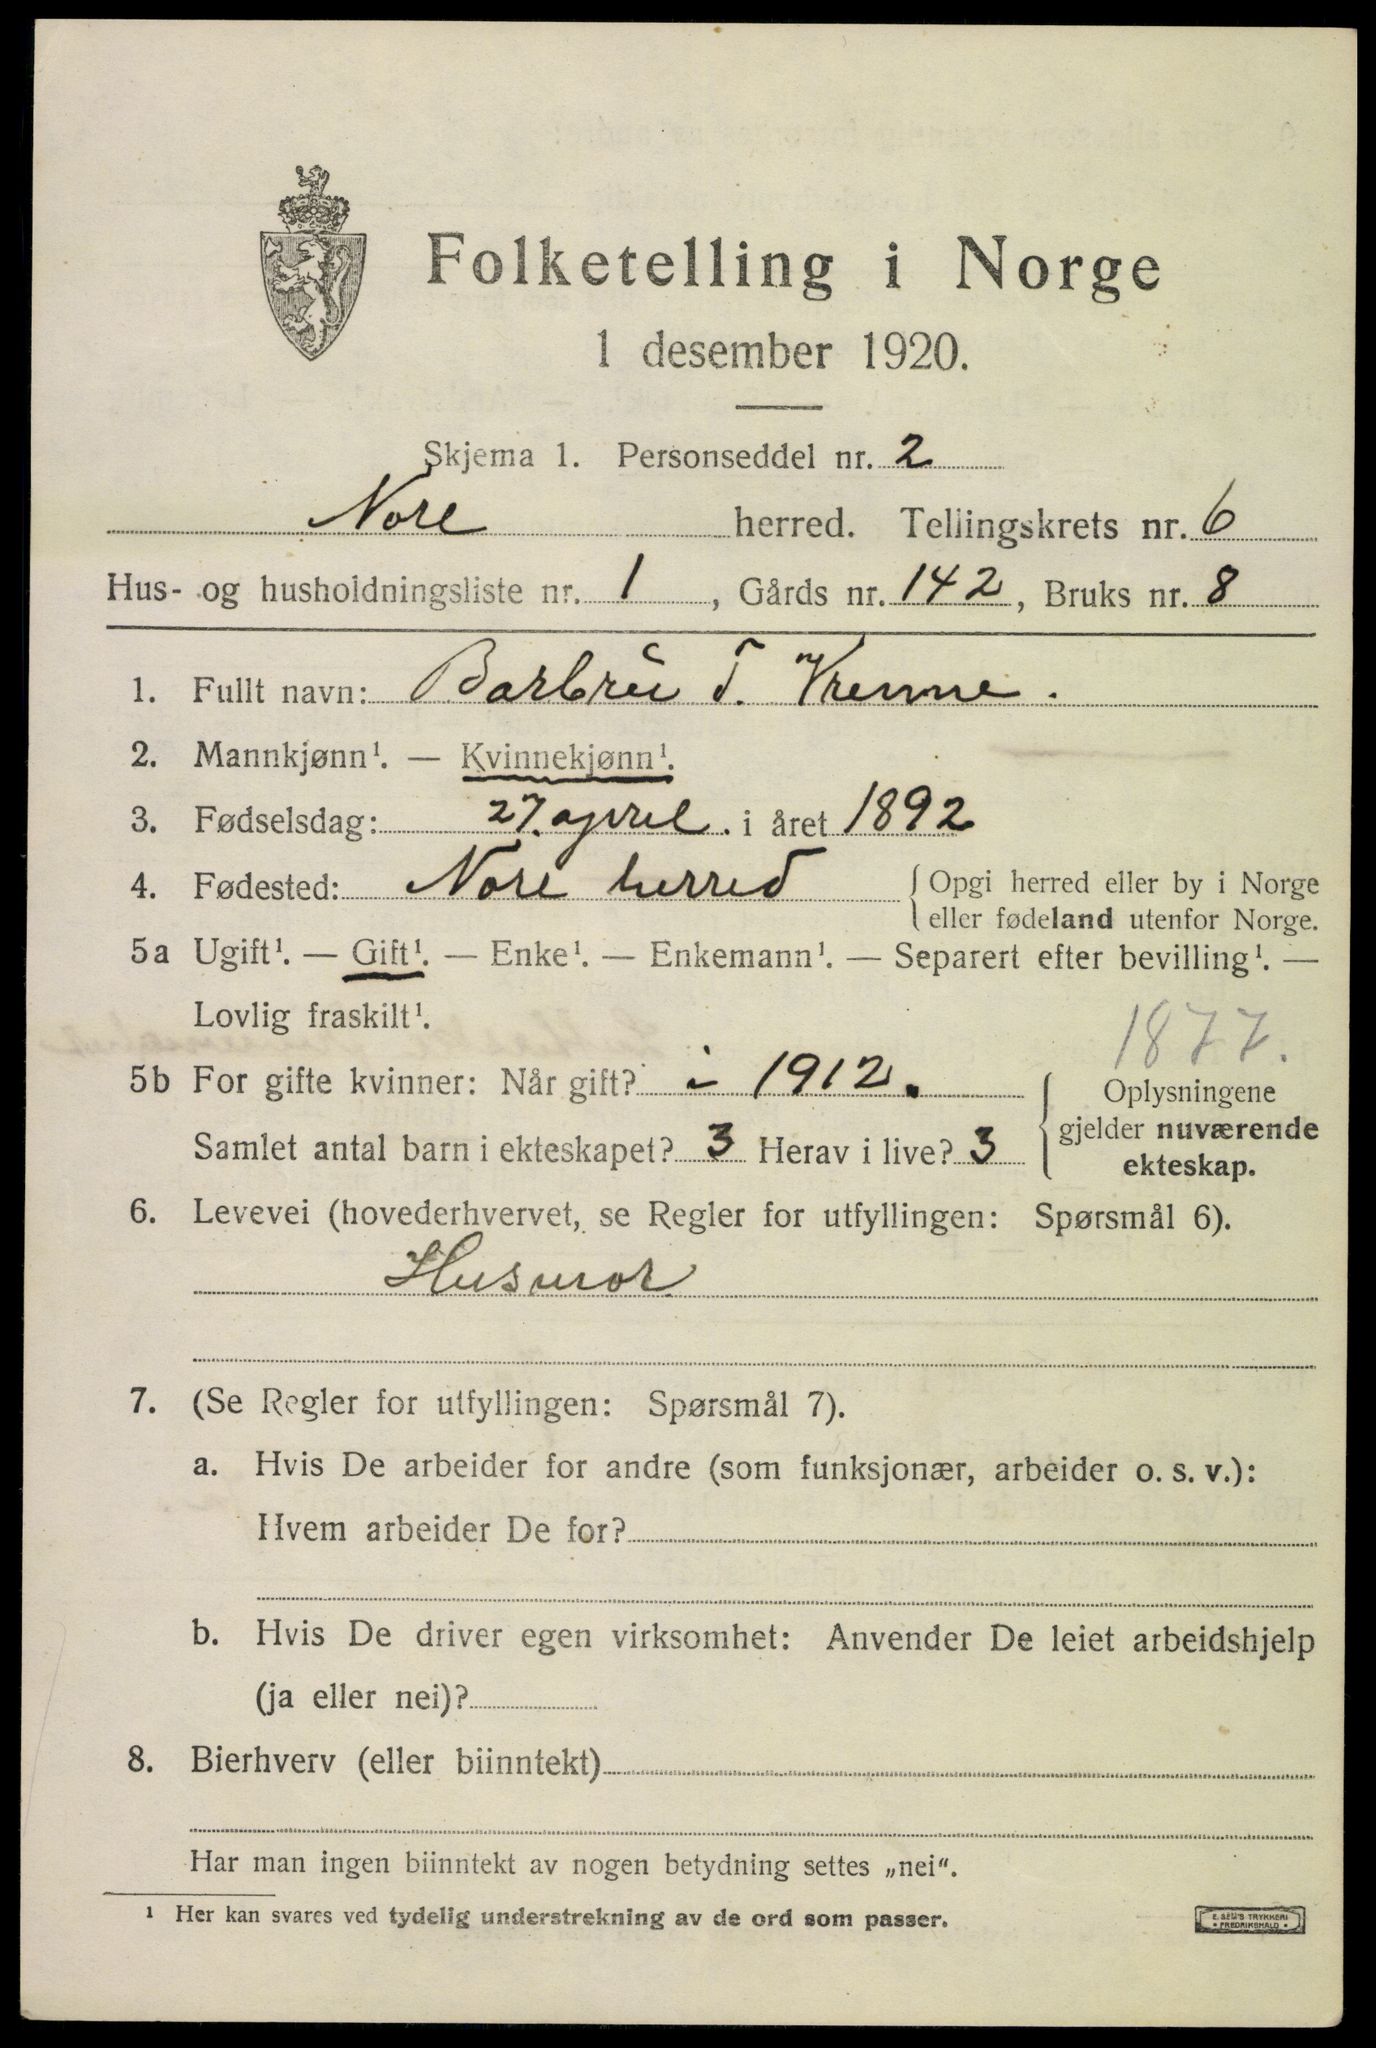 Folketelling i Norge
1 desember 1920.
Skjema 1. Personseddel nr. 2
Nore herred. Tellingskrets nr. 6
Hus- og husholdningsliste nr. 1, Gårds nr. 142, Bruks nr. 8
1. Fullt navn: Barbrei T. Vrenne.
2. Mannkjønn¹. — Kvinnekjønn¹.
3. Fødselsdag: 27. april. i året 1892
4. Fødested: Nore herred { Opgi herred eller by i Norge
eller fødeland utenfor Norge.
5a Ugift¹. — Gift¹. — Enke¹. — Enkemann¹. — Separert efter bevilling¹. —
Lovlig fraskilt¹.
1877.
5b For gifte kvinner: Når gift? i 1912. { Oplysningene
gjelder nuværende
Samlet antal barn i ekteskapet? 3 Herav i live? 3
ekteskap.
6. Levevei (hovederhvervet, se Regler for utfyllingen: Spørsmål 6).
Husmor
7. (Se Regler for utfyllingen: Spørsmål 7).
a. Hvis De arbeider for andre (som funksjonær, arbeider o. s. v.):
Hvem arbeider De for?
b. Hvis De driver egen virksomhet: Anvender De leiet arbeidshjelp
(ja eller nei)?
8. Bierhverv (eller biinntekt)
Har man ingen biinntekt av nogen betydning settes „nei“.
¹ Her kan svares ved tydelig understrekning av de ord som passer.
E. SEM'S TRYKKERI
• FREDRIKSHALD •